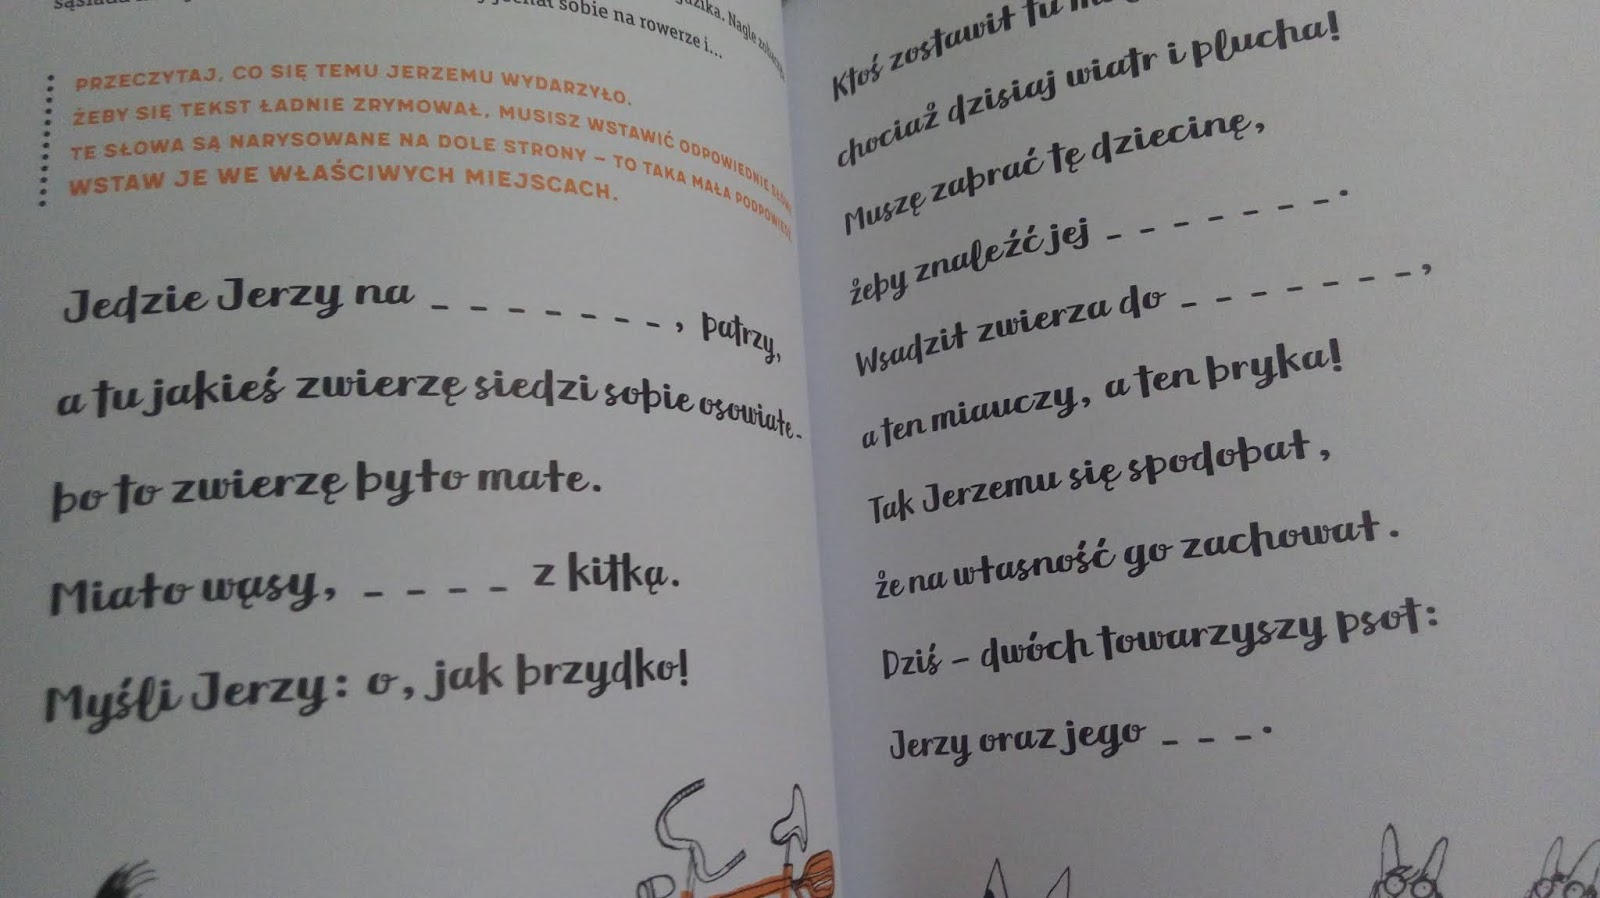 sobie na rowerze i...
Nagle
PRZECZYTAJ, CO SIĘ TEMU JERZEMU WYDARZYŁO.
ŻEBY SIĘ TEKST ŁADNIE ZRYMOWAŁ, MUSISZ WSTAWIĆ ODPOWIEDNIE SŁOWA
TE SŁOWA SĄ NARYSOWANE NA DOLE STRONY – TO TAKA MAŁA PODPOWIEDŹ.
WSTAW JE WE WŁAŚCIWYCH MIEJSCACH.
Jedzie Jerzy na _ _ _ _ _ _ _, patrzy,
a tu jakieś zwierzę siedzi sobie osowiałe.
bo to zwierzę było małe.
Miało wąsy, _ _ _ _ z kitką.
Myśli Jerzy: o, jak brzydko!
Ktoś zostawił tu
chociaż dzisiaj wiatr i plucha!
Muszę zabrać tę dziecinę,
żeby znaleźć jej _ _ _ _ _ _ _.
Wsadził zwierza do _ _ _ _ _ _ _ _,
a ten miauczy, a ten bryka!
Tak Jerzemu się spodobał,
że na własność go zachował.
Dziś – dwóch towarzyszy psot:
Jerzy oraz jego _ _ _.